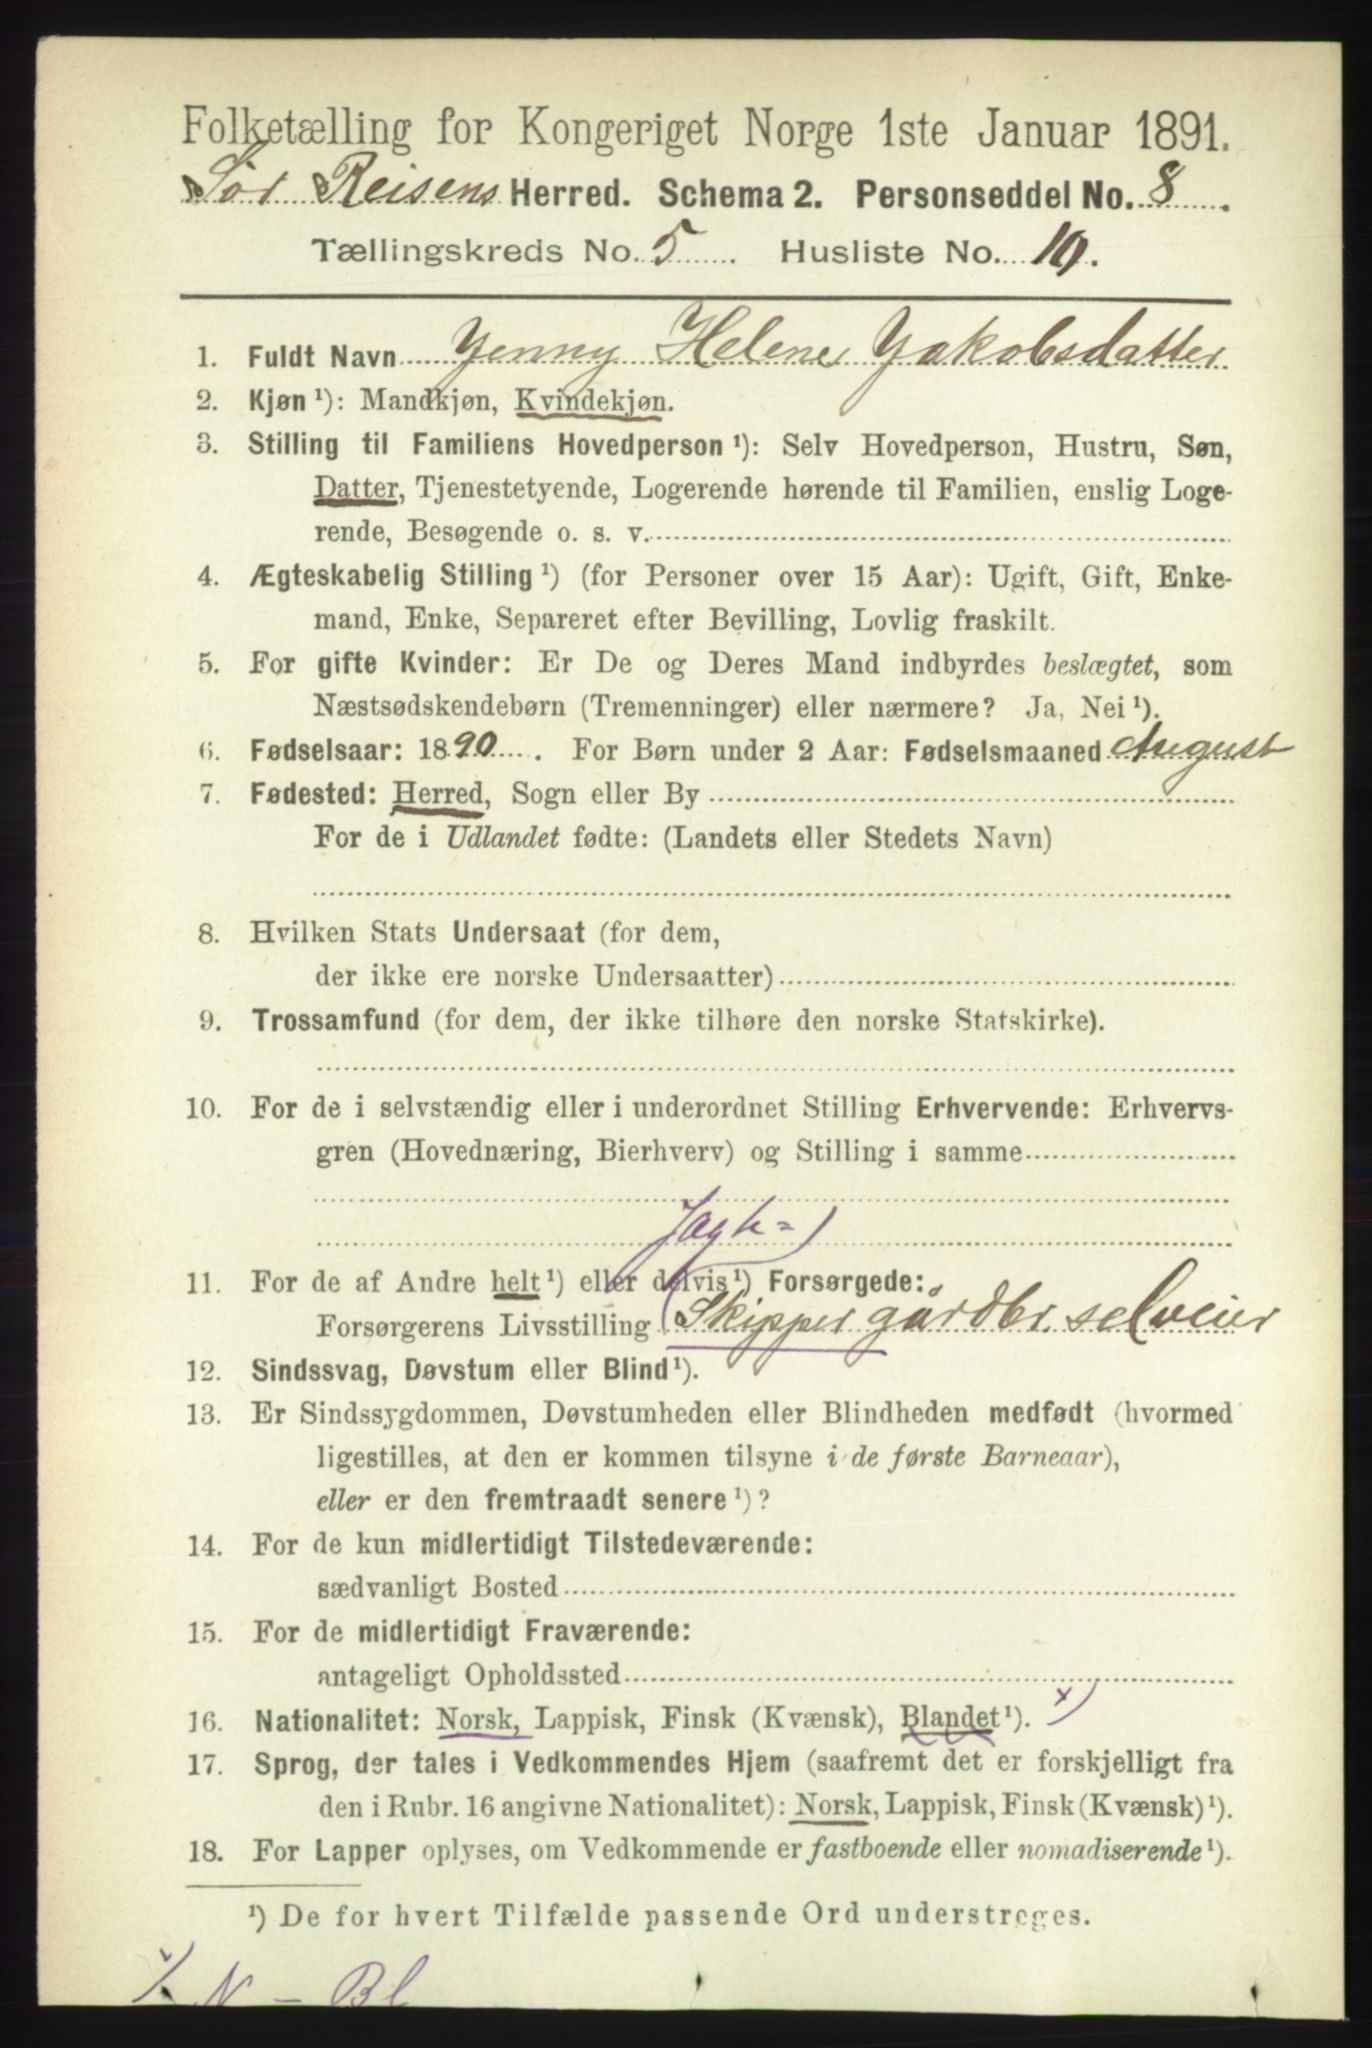 Folketælling for Kongeriget Norge 1ste Januar 1891.
Sør Reisens Herred. Schema 2. Personseddel No. 8.
Tællingskreds No. 5 Husliste No. 10.
1. Fuldt Navn Yenny Helene Yakobsdatter
2. Kjøn¹): Mandkjøn, Kvindekjøn.
3. Stilling til Familiens Hovedperson¹): Selv Hovedperson, Hustru, Søn,
Datter, Tjenestetyende, Logerende hørende til Familien, enslig Loge-
rende, Besøgende o. s. v.
4. Ægteskabelig Stilling¹) (for Personer over 15 Aar): Ugift, Gift, Enke-
mand, Enke, Separeret efter Bevilling, Lovlig fraskilt.
5. For gifte Kvinder: Er De og Deres Mand indbyrdes beslægtet, som
Næstsødskendebørn (Tremenninger) eller nærmere? Ja, Nei¹).
6. Fødselsaar: 1890. For Børn under 2 Aar: Fødselsmaaned August
7. Fødested: Herred, Sogn eller By
For de i Udlandet fødte: (Landets eller Stedets Navn)
8. Hvilken Stats Undersaat (for dem,
der ikke ere norske Undersaatter)
9. Trossamfund (for dem, der ikke tilhøre den norske Statskirke).
10. For de i selvstændig eller i underordnet Stilling Erhvervende: Erhvervs-
gren (Hovednæring, Bierhverv) og Stilling i samme
Jagt=)
11. For de af Andre helt¹) eller delvis¹) Forsørgede:
Forsørgerens Livsstilling (Skipper gårdbr. selveier
12. Sindssvag, Døvstum eller Blind¹).
13. Er Sindssygdommen, Døvstumheden eller Blindheden medfødt (hvormed
ligestilles, at den er kommen tilsyne i de første Barneaar),
eller er den fremtraadt senere¹)?
14. For de kun midlertidigt Tilstedeværende:
sædvanligt Bosted
15. For de midlertidigt Fraværende:
antageligt Opholdssted
16. Nationalitet: Norsk, Lappisk, Finsk (Kvænsk), Blandet¹). x)
17. Sprog, der tales i Vedkommendes Hjem (saafremt det er forskjelligt fra
den i Rubr. 16 angivne Nationalitet): Norsk, Lappisk, Finsk (Kvænsk)¹).
18. For Lapper oplyses, om Vedkommende er fastboende eller nomadiserende¹).
¹) De for hvert Tilfælde passende Ord understreges.
x/ N - Bl